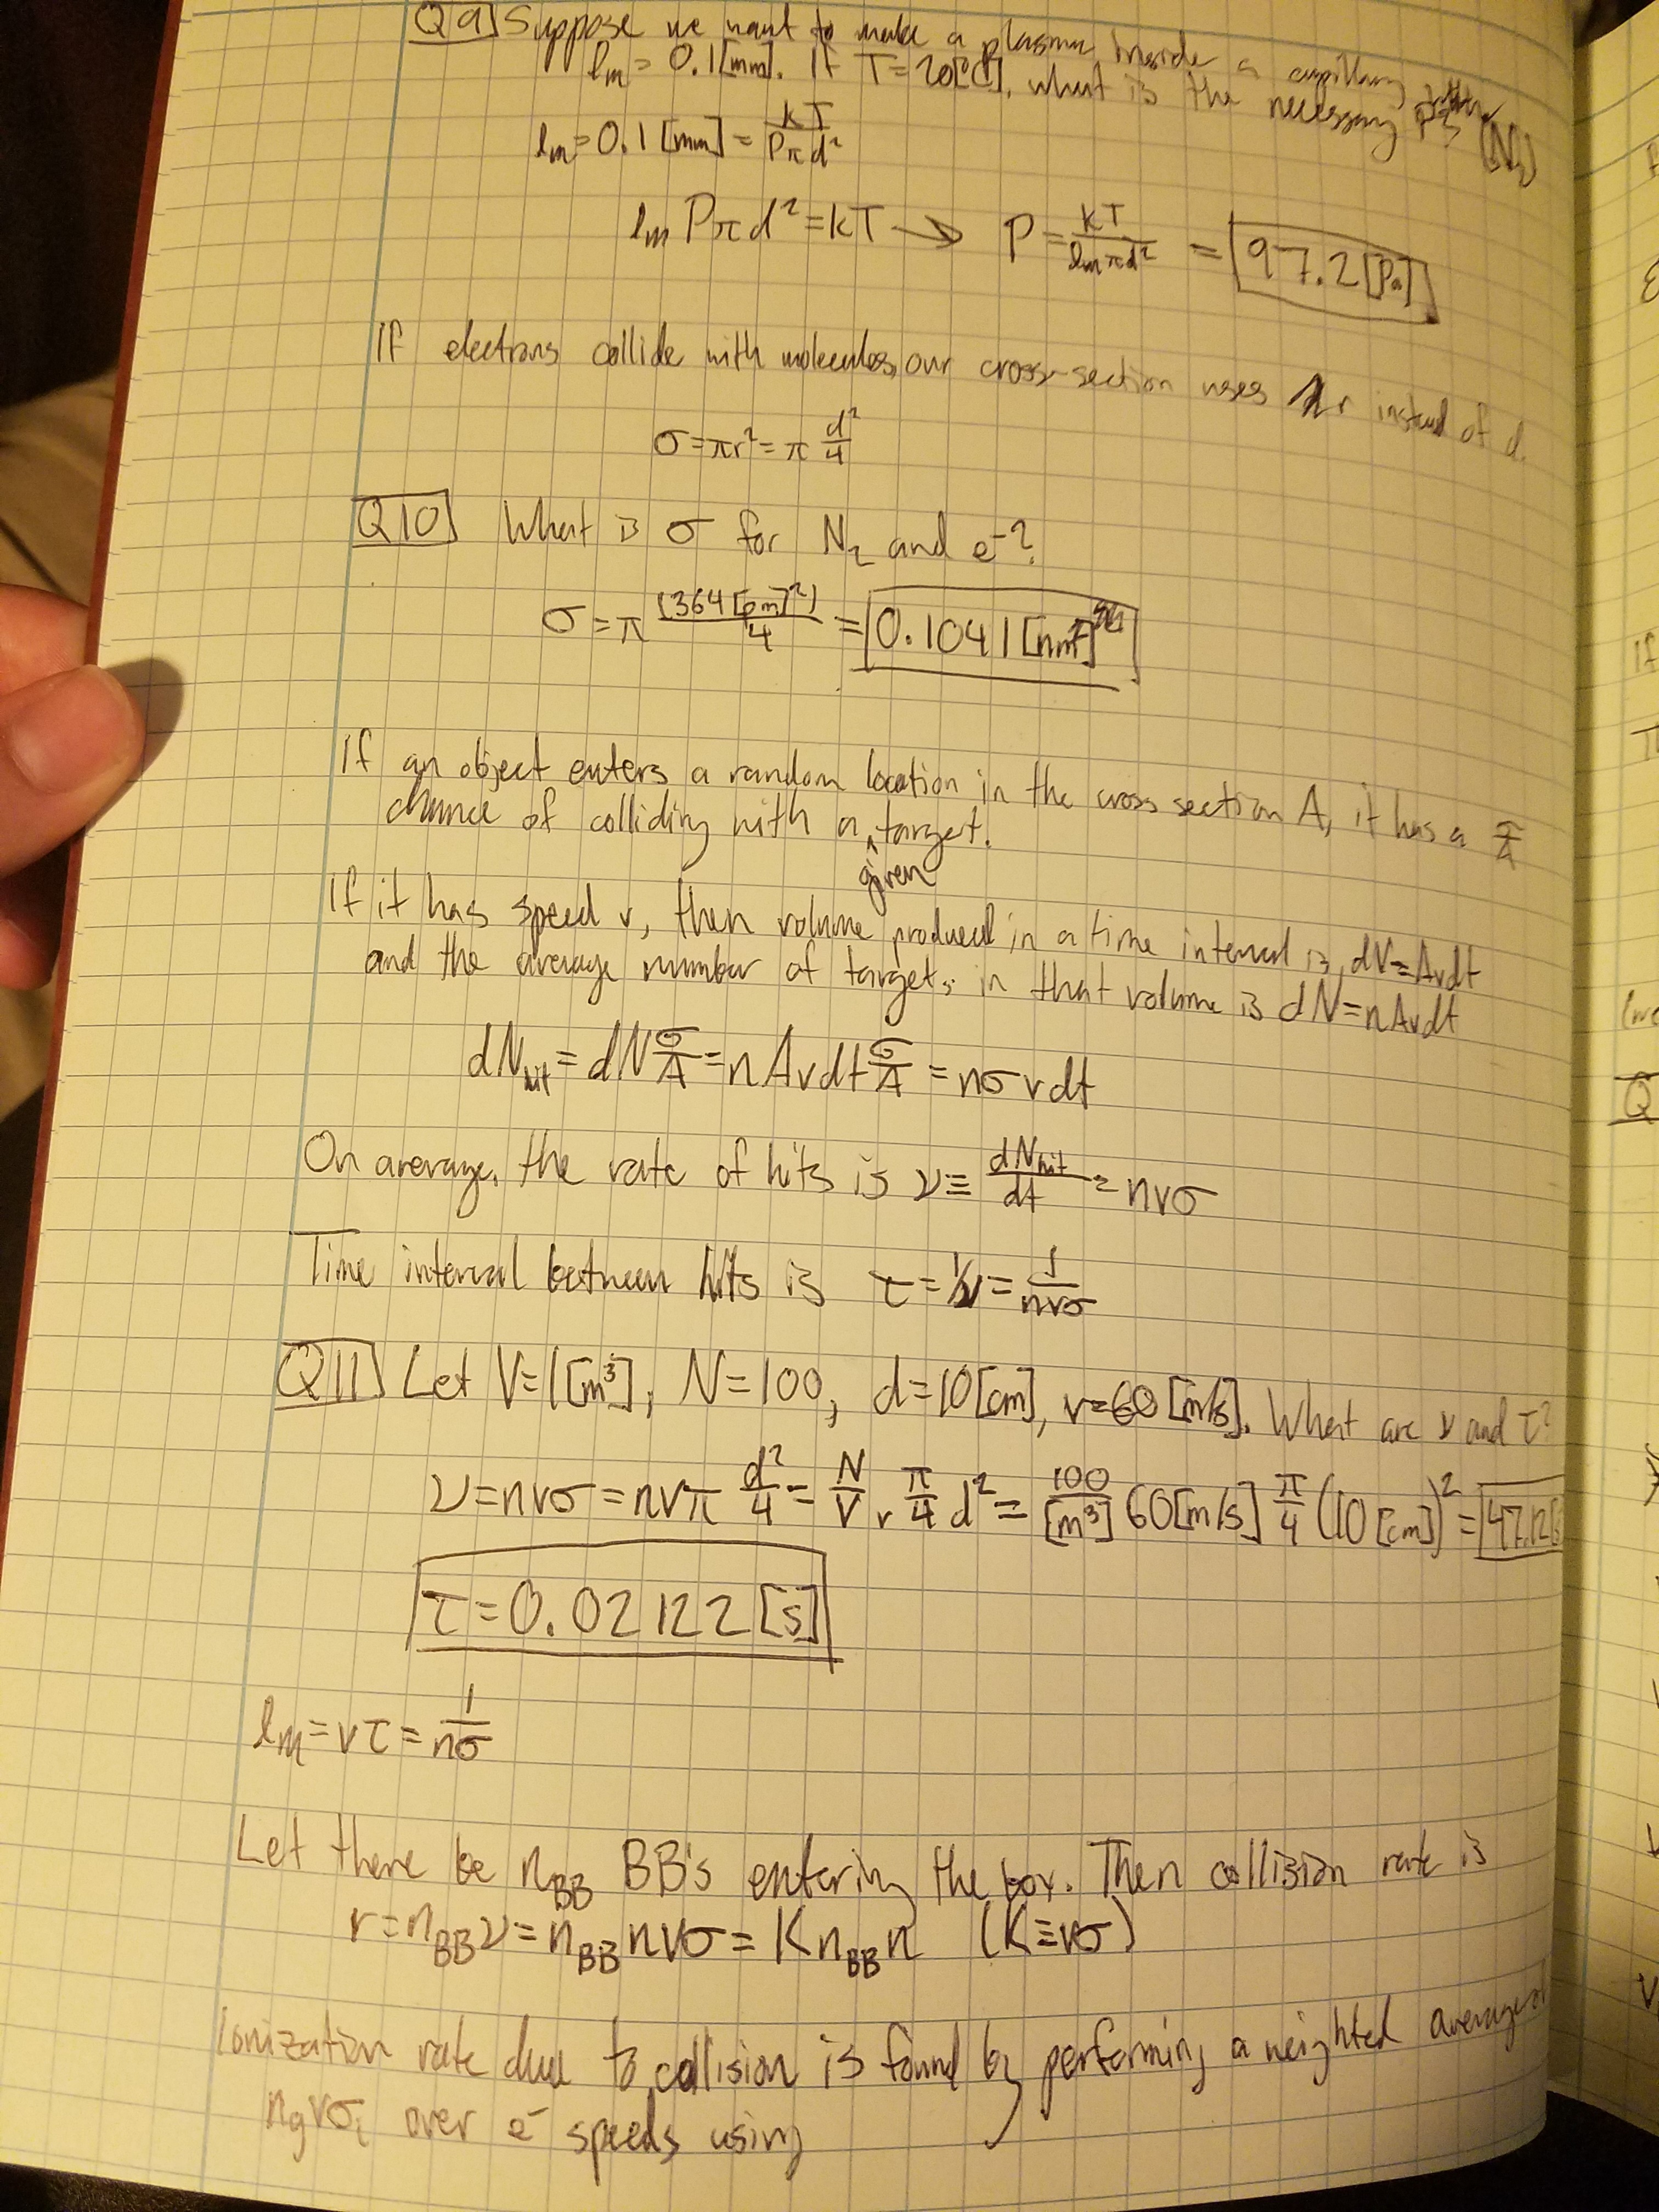 Q9 Suppose we want to make a plasma inside a capillary
lm = 0.1[mm]. If T=20[°C], what is the necessary P? (N2)
lm = 0.1[mm] = kT/Pπd²
lm Pπd² = kT → P = kT/lmπd² = 97.2[Pa]
If electrons collide with molecules, our cross-section uses r instead of d.
σ = πr² = π d²/4
Q10 What is σ for N2 and e⁻?
σ = π (364[pm]²)/4 = 0.1041[nm²]
If an object enters a random location in the cross section A, it has a σ/A
chance of colliding with a given target.
If it has speed v, then volume produced in a time interval is dV=Avdt
and the average number of targets in that volume is dN=nAvdt
dNhit = dN σ/A = nAvdt σ/A = nσvdt
On average, the rate of hits is ν ≡ dNhit/dt = nvσ
Time interval between hits is τ = 1/ν = 1/nvσ
Q11 Let V=1[m³], N=100, d=10[cm], v=60[m/s]. What are ν and τ?
ν = nvσ = nvπ d²/4 = N/V v π/4 d² = 100/[m³] 60[m/s] π/4 (10[cm])² = 47.12
τ = 0.02122[s]
lm = vτ = 1/nσ
Let there be nBB BB's entering the box. Then collision rate is
r = nBBν = nBB nvσ = K nBB n (K≡vσ)
Ionization rate due to collision is found by performing a weighted average
ngvσi over e⁻ speeds using